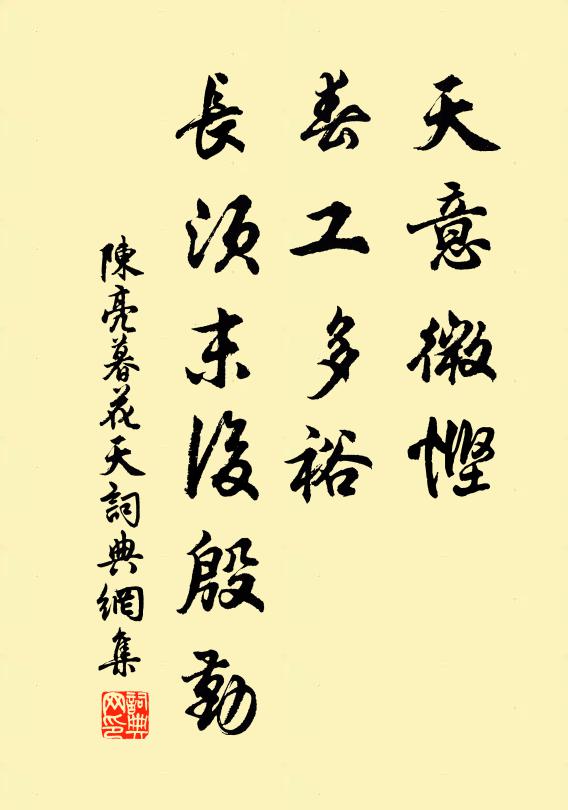 天意微慳
春工多裕
長須末後殷勤
陳亮暮花天詞典網集
詞典網印